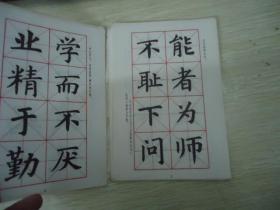 能者为师
不耻下问
学而不厌
业精于勤